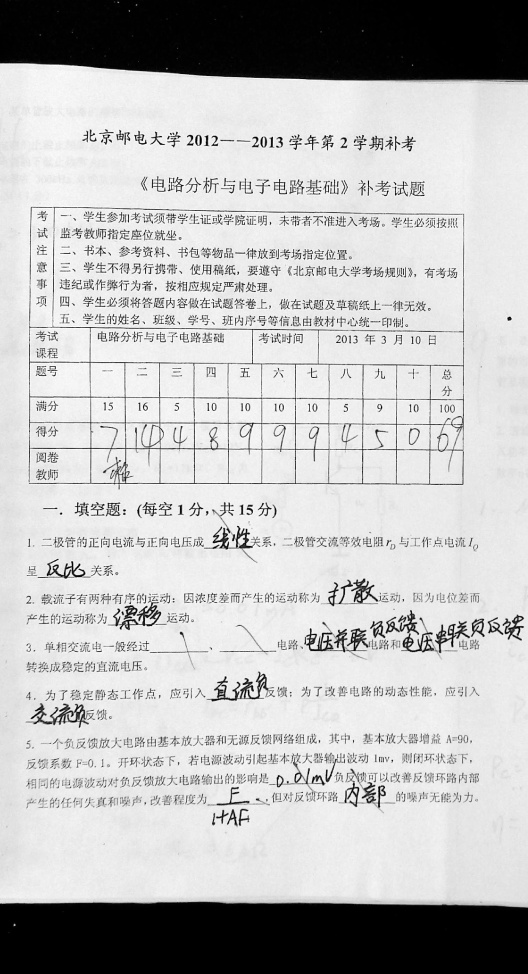 北京邮电大学2012——2013学年第2学期补考
《电路分析与电子电路基础》补考试题
考试注意事项
一、学生参加考试须带学生证或学院证明，未带者不准进入考场。学生必须按照
监考教师指定座位就坐。
二、书本、参考资料、书包等物品一律放到考场指定位置。
三、学生不得另行携带、使用稿纸，要遵守《北京邮电大学考场规则》，有考场
违纪或作弊行为者，按相应规定严肃处理。
四、学生必须将答题内容做在试题答卷上，做在试题及草稿纸上一律无效。
五、学生的姓名、班级、学号、班内序号等信息由教材中心统一印制。
考试课程 电路分析与电子电路基础 考试时间 2013 年 3 月 10 日
题号 一 二 三 四 五 六 七 八 九 十 总分
满分 15 16 5 10 10 10 10 5 9 10 100
得分 7 14 4 8 9 9 9 4 5 0 69
阅卷教师
一. 填空题: (每空1分, 共15分)
1. 二极管的正向电流与正向电压成 线性 关系，二极管交流等效电阻 r_D 与工作点电流 I_Q
呈 反比 关系。
2. 载流子有两种有序的运动：因浓度差而产生的运动称为 扩散 运动，因为电位差而
产生的运动称为 漂移 运动。
3. 单相交流电一般经过________、________电路、电压并联负反馈电路和电压串联负反馈电路
转换成稳定的直流电压。
4. 为了稳定静态工作点，应引入 直流负 反馈；为了改善电路的动态性能，应引入
交流负反馈。
5. 一个负反馈放大电路由基本放大器和无源反馈网络组成，其中，基本放大器增益 A=90,
反馈系数 F=0.1。开环状态下，若电源波动引起基本放大器输出波动 1mv，则闭环状态下，
相同的电源波动对负反馈放大电路输出的影响是 0.01mV 负反馈可以改善反馈环路内部
产生的任何失真和噪声，改善程度为 F/1+AF ，但对反馈环路 内部 的噪声无能为力。